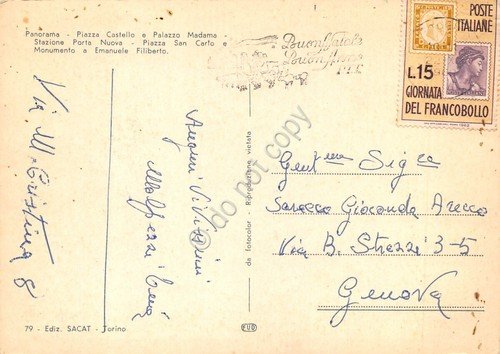 Panorama - Piazza Castello e Palazzo Madama
Stazione Porta Nuova - Piazza San Carlo e
Monumento a Emanuele Filiberto.
Buon Natale
Buon Anno
POSTE
ITALIANE
L.15
GIORNATA
DEL FRANCOBOLLO
Via M. Cristina 8
Auguri Vivissimi
da fotocolor - Riproduzione vietata
do not copy
Gent.ma Sig.ra
Saracco Gioconda Arecco
Via B. Strozzi 3-5
Genova
79 - Ediz. SACAT - Torino